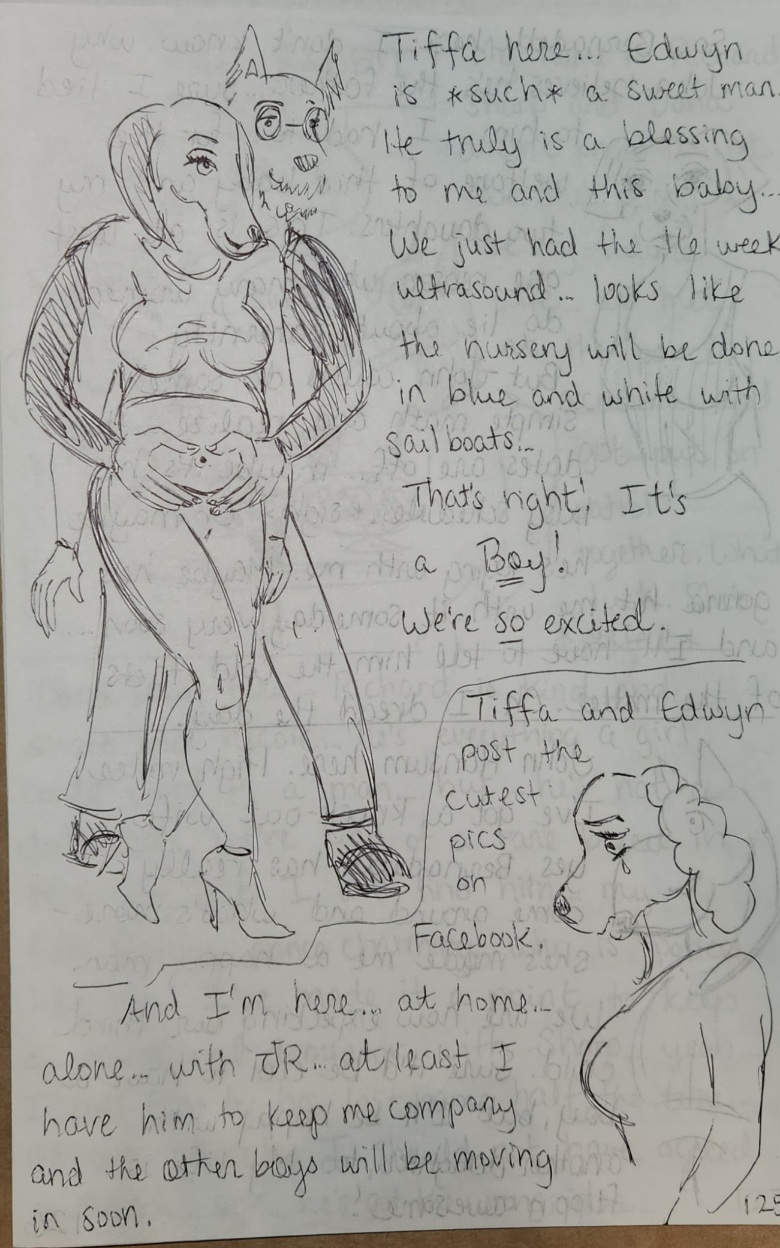 Tiffa here... Edwyn
is *such* a sweet man.
He truly is a blessing
to me and this baby...
We just had the 16 week
ultrasound... looks like
the nursery will be done
in blue and white with
sailboats...
That's right! It's
a Boy!
We're so excited.
Tiffa and Edwyn
post the
cutest
pics
on
Facebook.
And I'm here... at home...
alone... with JR... at least I
have him to keep me company
and the other boys will be moving
in soon.
125